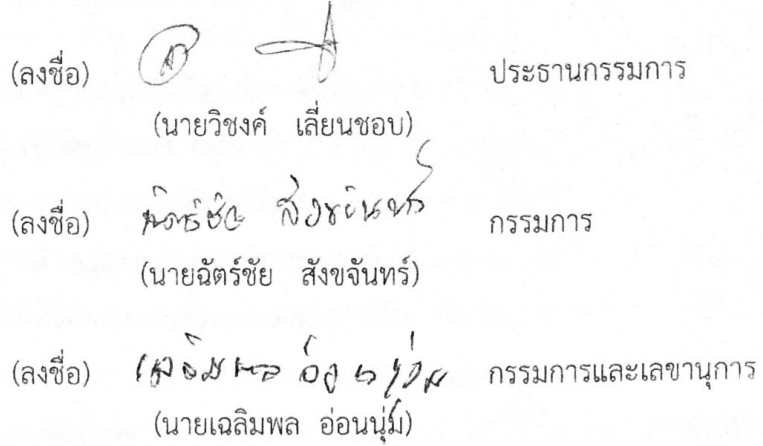 (ลงชื่อ) ประธานกรรมการ
(นายวิชงค์ เลี่ยนชอบ)
(ลงชื่อ) ฉัตร์ชัย สังขจันทร์ กรรมการ
(นายฉัตร์ชัย สังขจันทร์)
(ลงชื่อ) เฉลิมพล อ่อนนุ่ม กรรมการและเลขานุการ
(นายเฉลิมพล อ่อนนุ่ม)